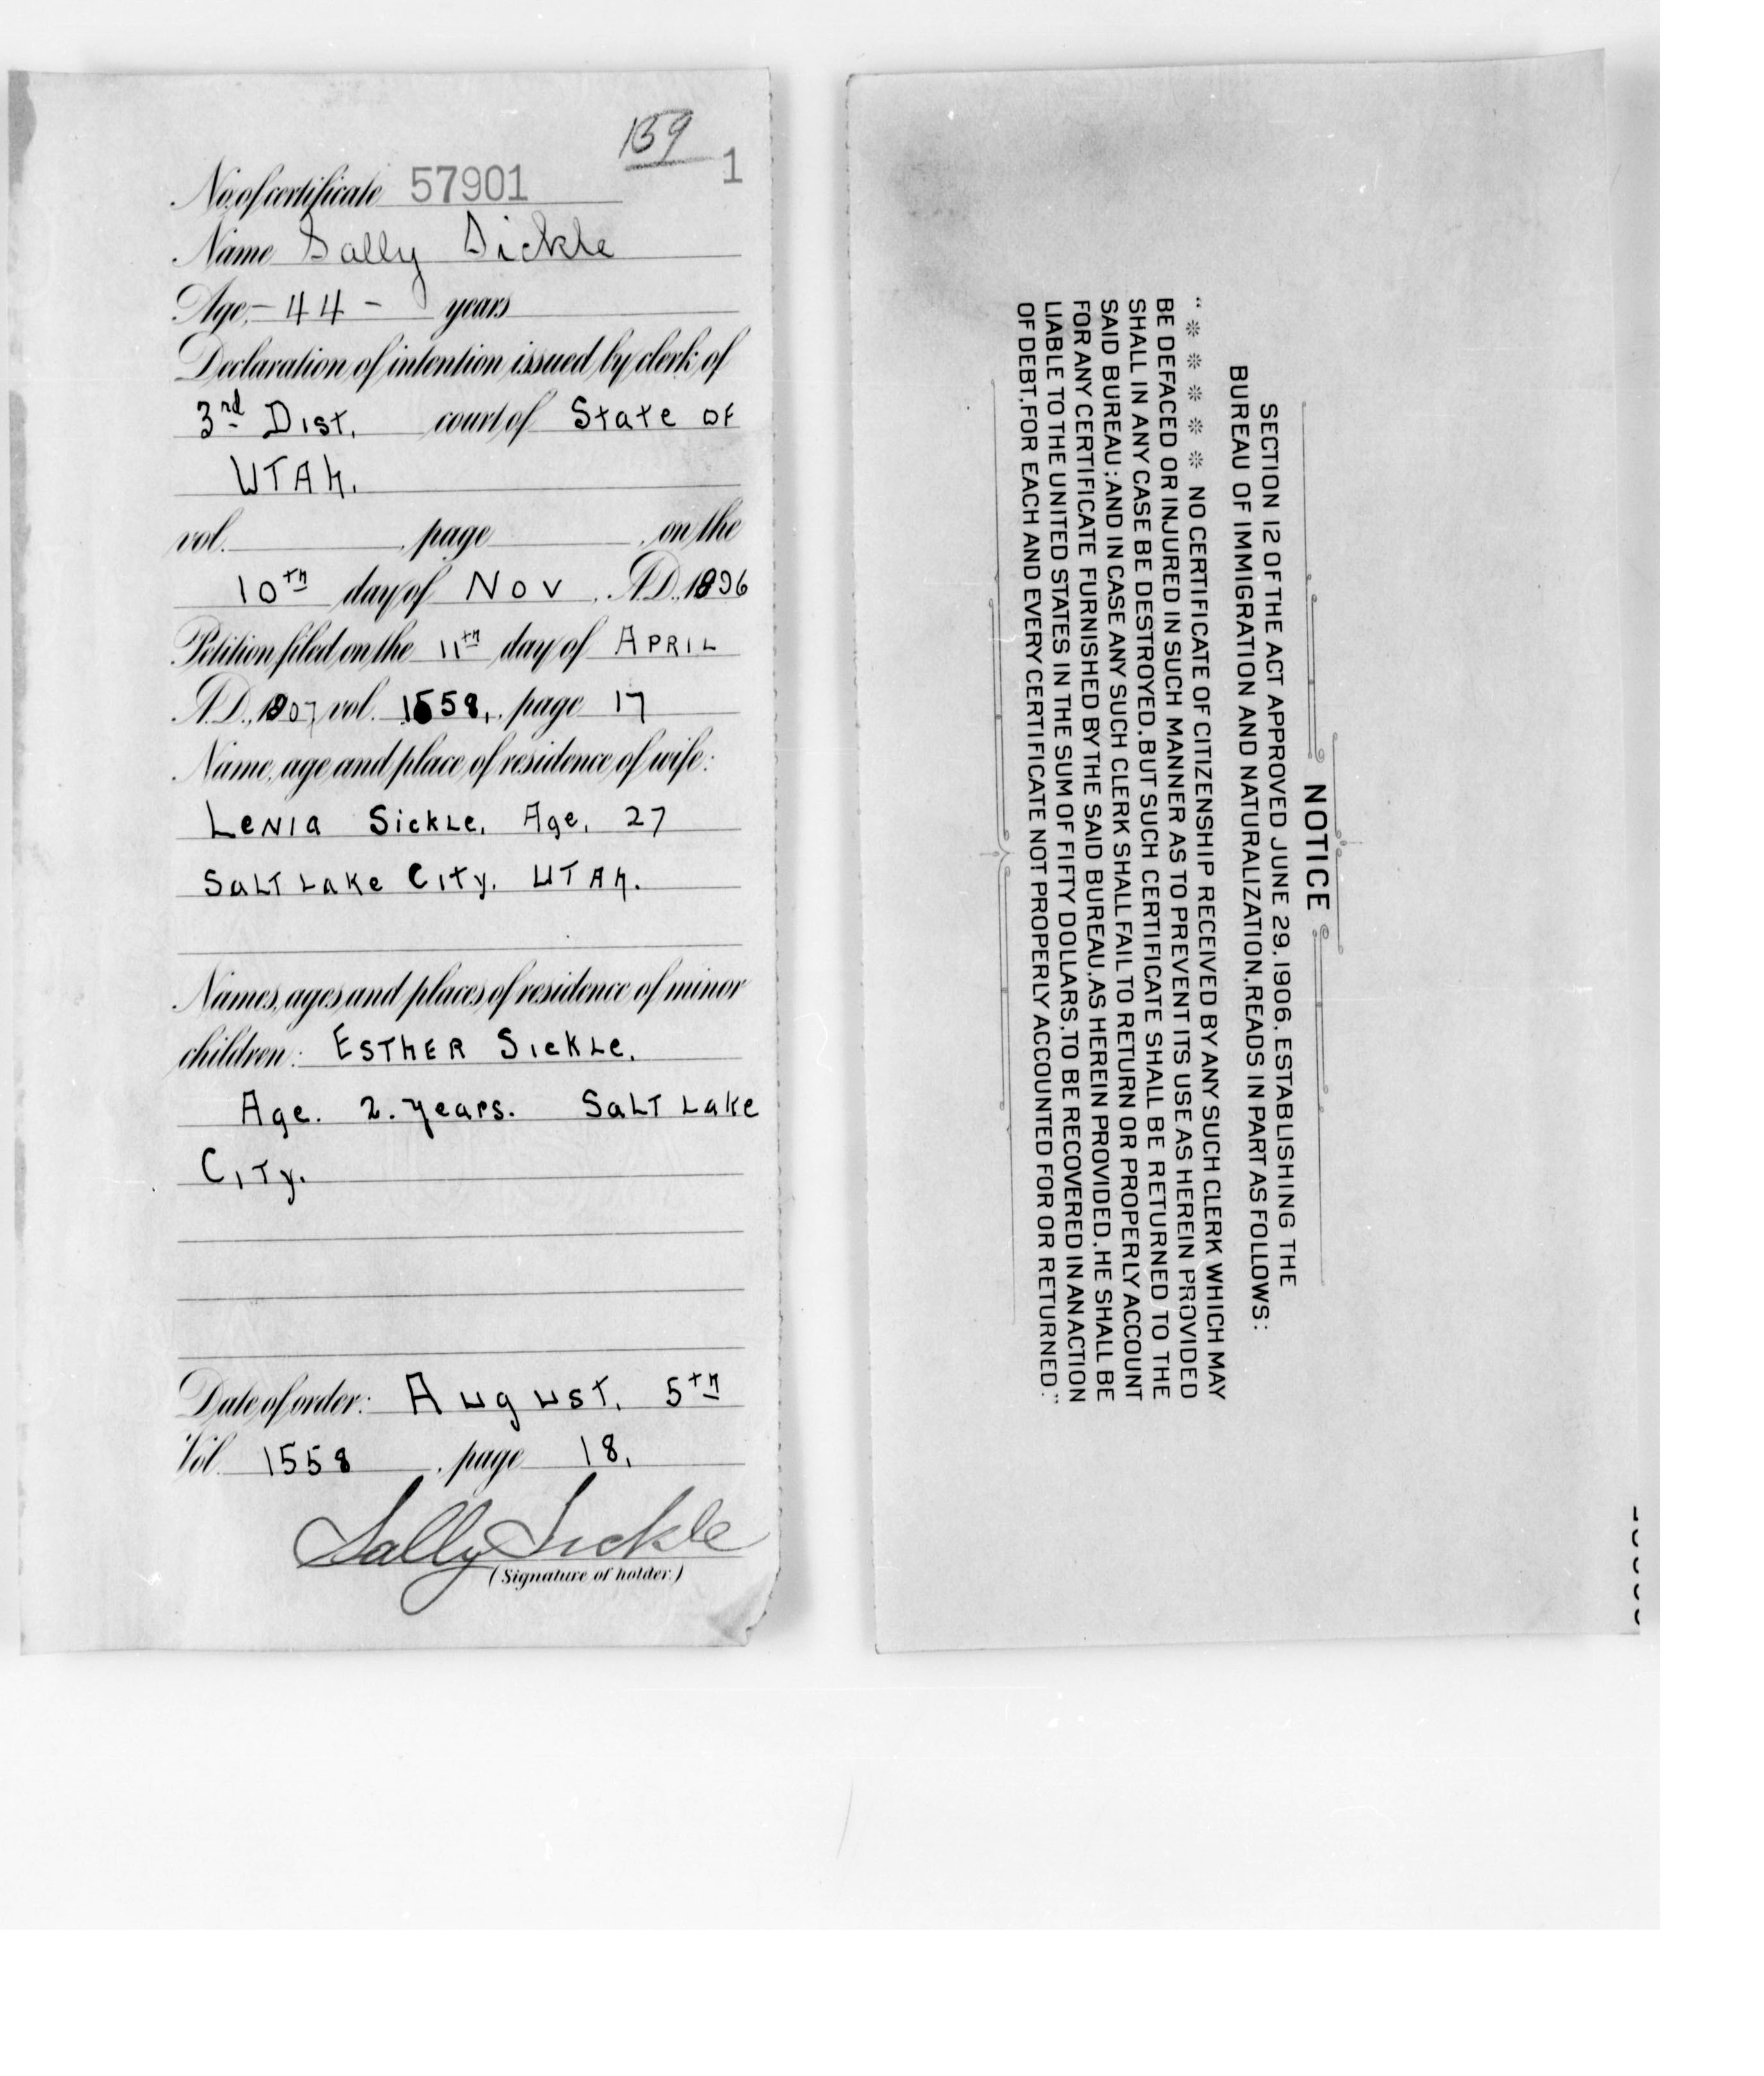 159
No. of certificate 57901 1
Name Sally Sickle
Age - 44 - years
Declaration of intention issued by clerk of
3rd Dist. court of State of
UTAh.
vol. , page , on the
10th day of Nov , A.D., 1896
Petition filed on the 11th day of APRIL
A.D., 1907, vol. 1558, , page 17
Name, age and place of residence of wife:
LeNia Sickle, Age, 27
SaLT Lake City, UTAh.
Names, ages and places of residence of minor
children: ESThER SickLe,
Age. 2. years. SaLT Lake
City.
Date of order: August, 5th
Vol. 1558 , page 18,
Sally Sickle
(Signature of holder.)
NOTICE
SECTION 12 OF THE ACT APPROVED JUNE 29, 1906, ESTABLISHING THE
BUREAU OF IMMIGRATION AND NATURALIZATION, READS IN PART AS FOLLOWS:
"* * * * * NO CERTIFICATE OF CITIZENSHIP RECEIVED BY ANY SUCH CLERK WHICH MAY
BE DEFACED OR INJURED IN SUCH MANNER AS TO PREVENT ITS USE AS HEREIN PROVIDED
SHALL IN ANY CASE BE DESTROYED, BUT SUCH CERTIFICATE SHALL BE RETURNED TO THE
SAID BUREAU; AND IN CASE ANY SUCH CLERK SHALL FAIL TO RETURN OR PROPERLY ACCOUNT
FOR ANY CERTIFICATE FURNISHED BY THE SAID BUREAU, AS HEREIN PROVIDED, HE SHALL BE
LIABLE TO THE UNITED STATES IN THE SUM OF FIFTY DOLLARS, TO BE RECOVERED IN AN ACTION
OF DEBT, FOR EACH AND EVERY CERTIFICATE NOT PROPERLY ACCOUNTED FOR OR RETURNED."